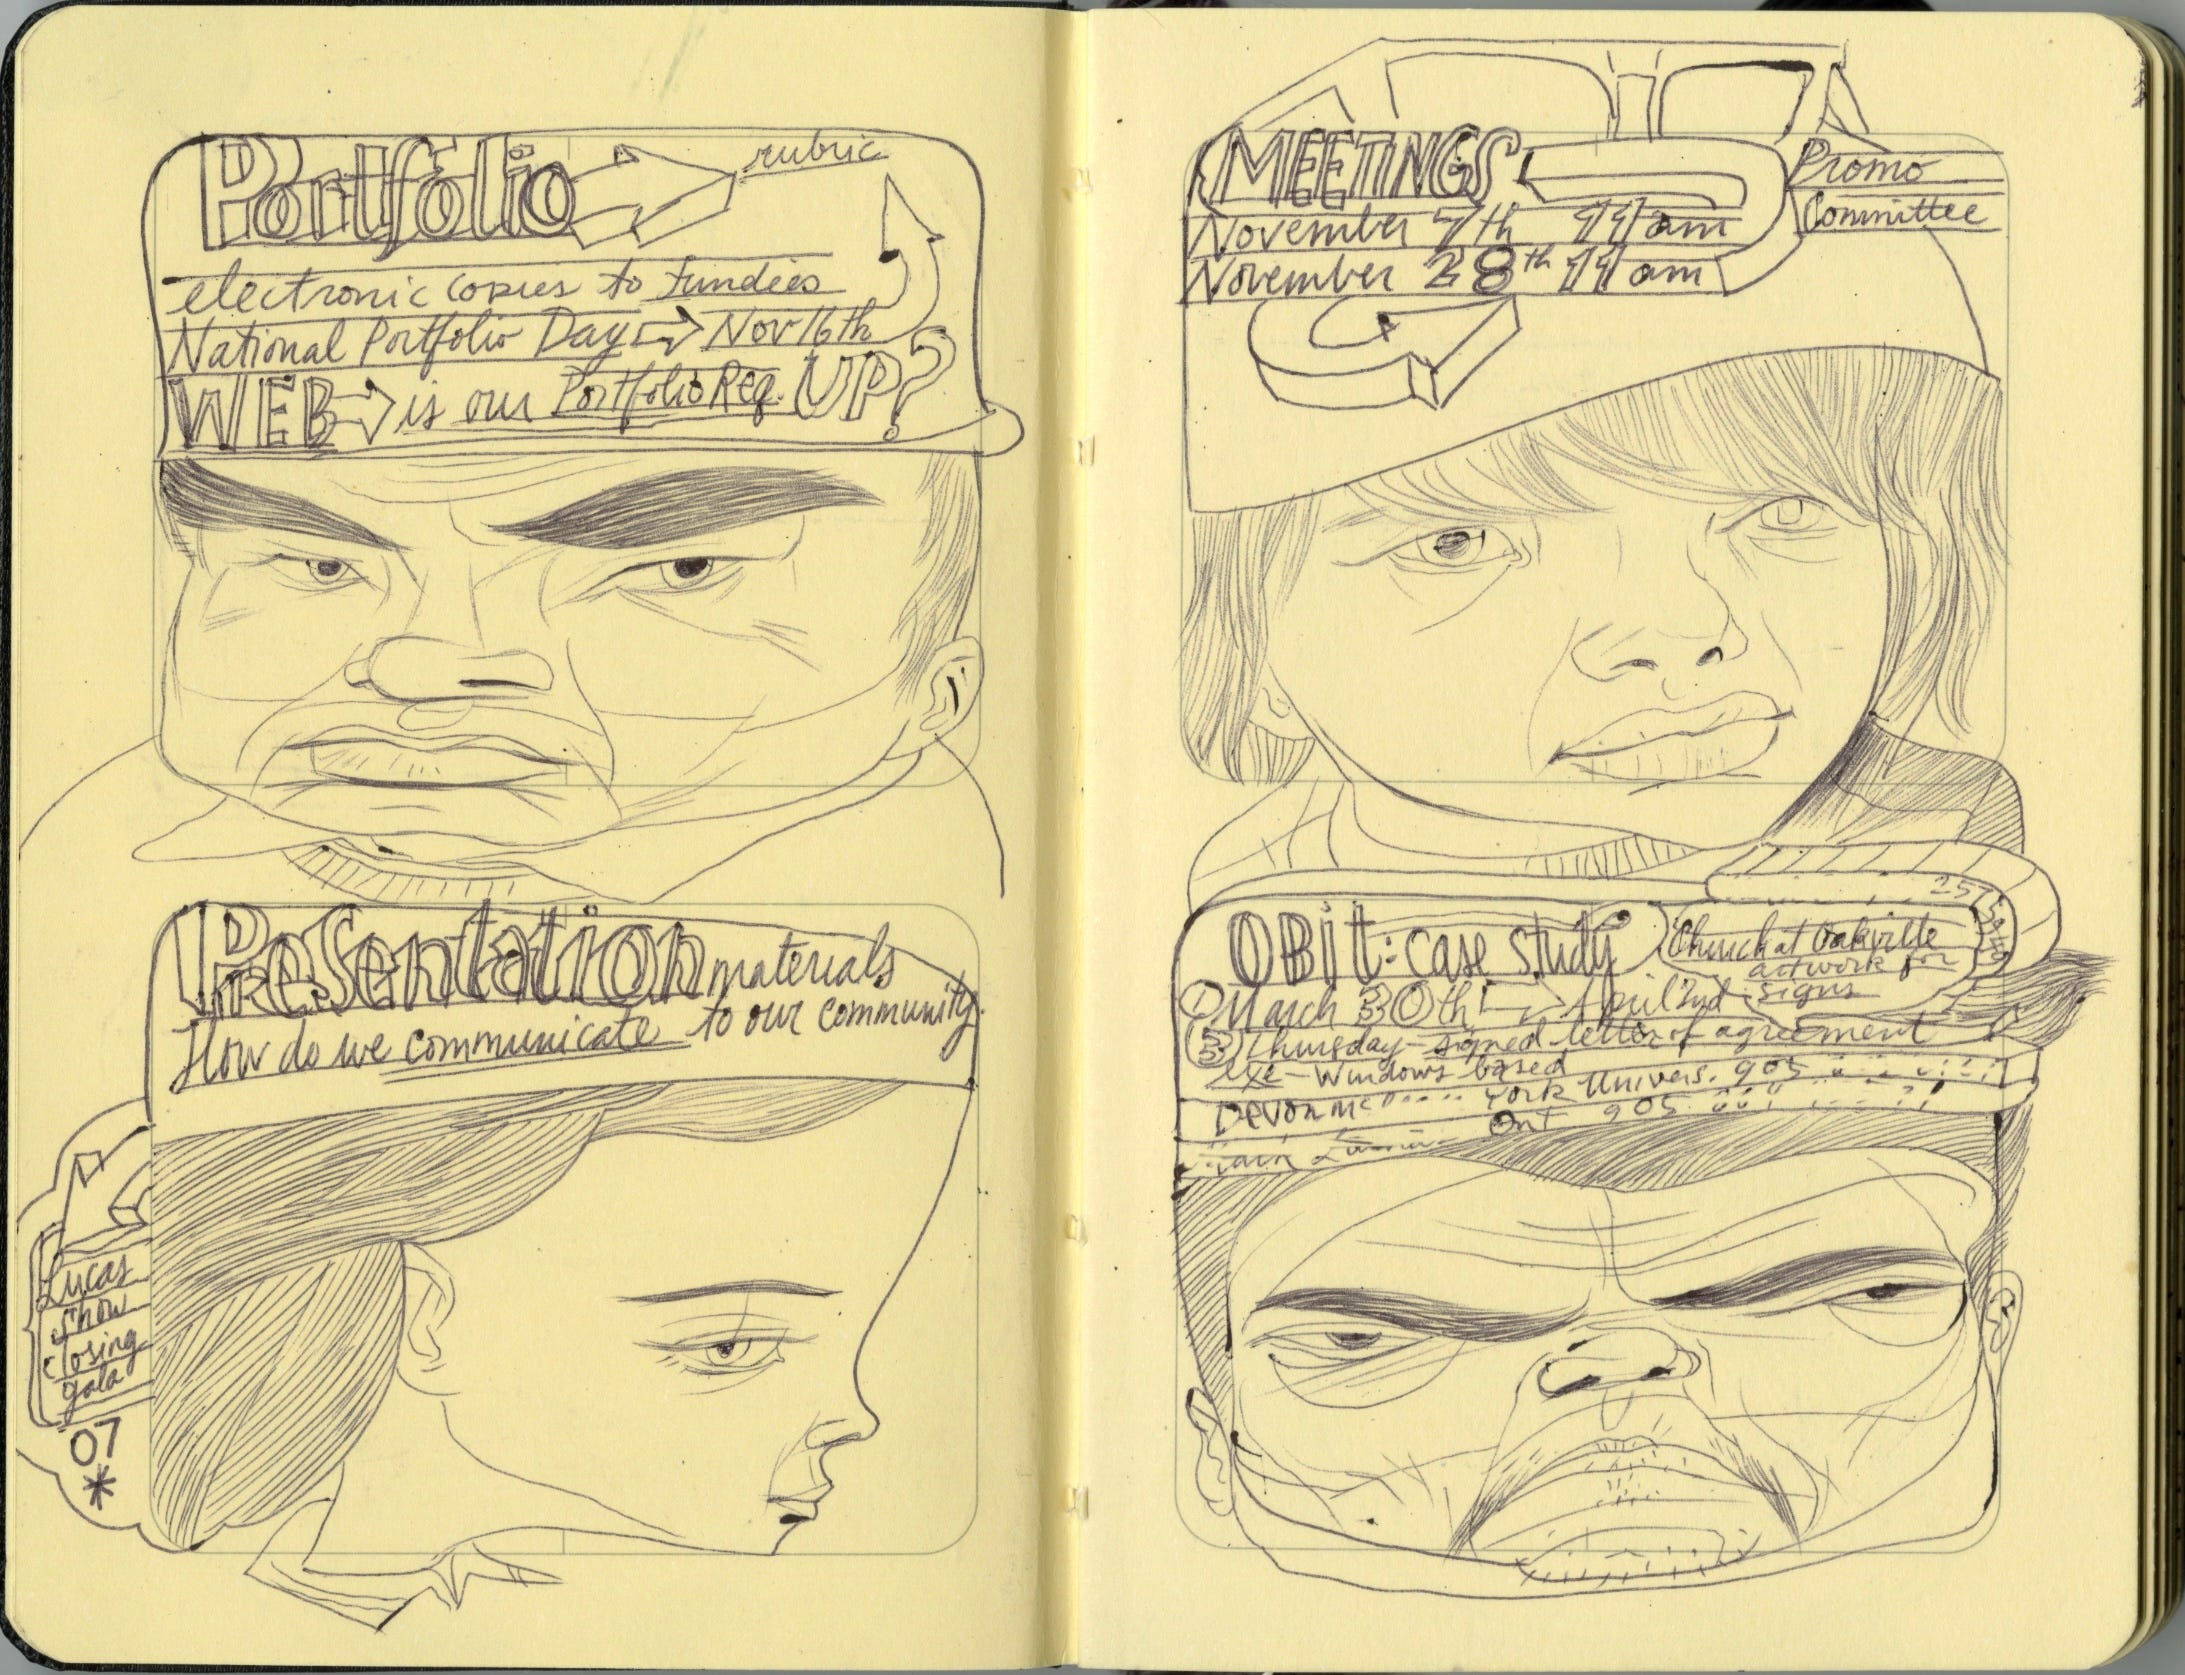 Portfolio rubric
electronic copies to Fundies
National Portfolio Day Nov 16th
WEB is our Portfolio Req. UP?
Presentation materials
How do we communicate to our community.
Lucas
show
closing
gala
07
*
MEETINGS
Promo
Committee
November 7th 11 am
November 28th 11 am
OBit: case study
Church at Oakville
artwork for
signs
25
① March 30th April 2nd
Thursday - signed letter of agreement
exe - Windows based
Devon Mc York Univers. 905
Ont 905